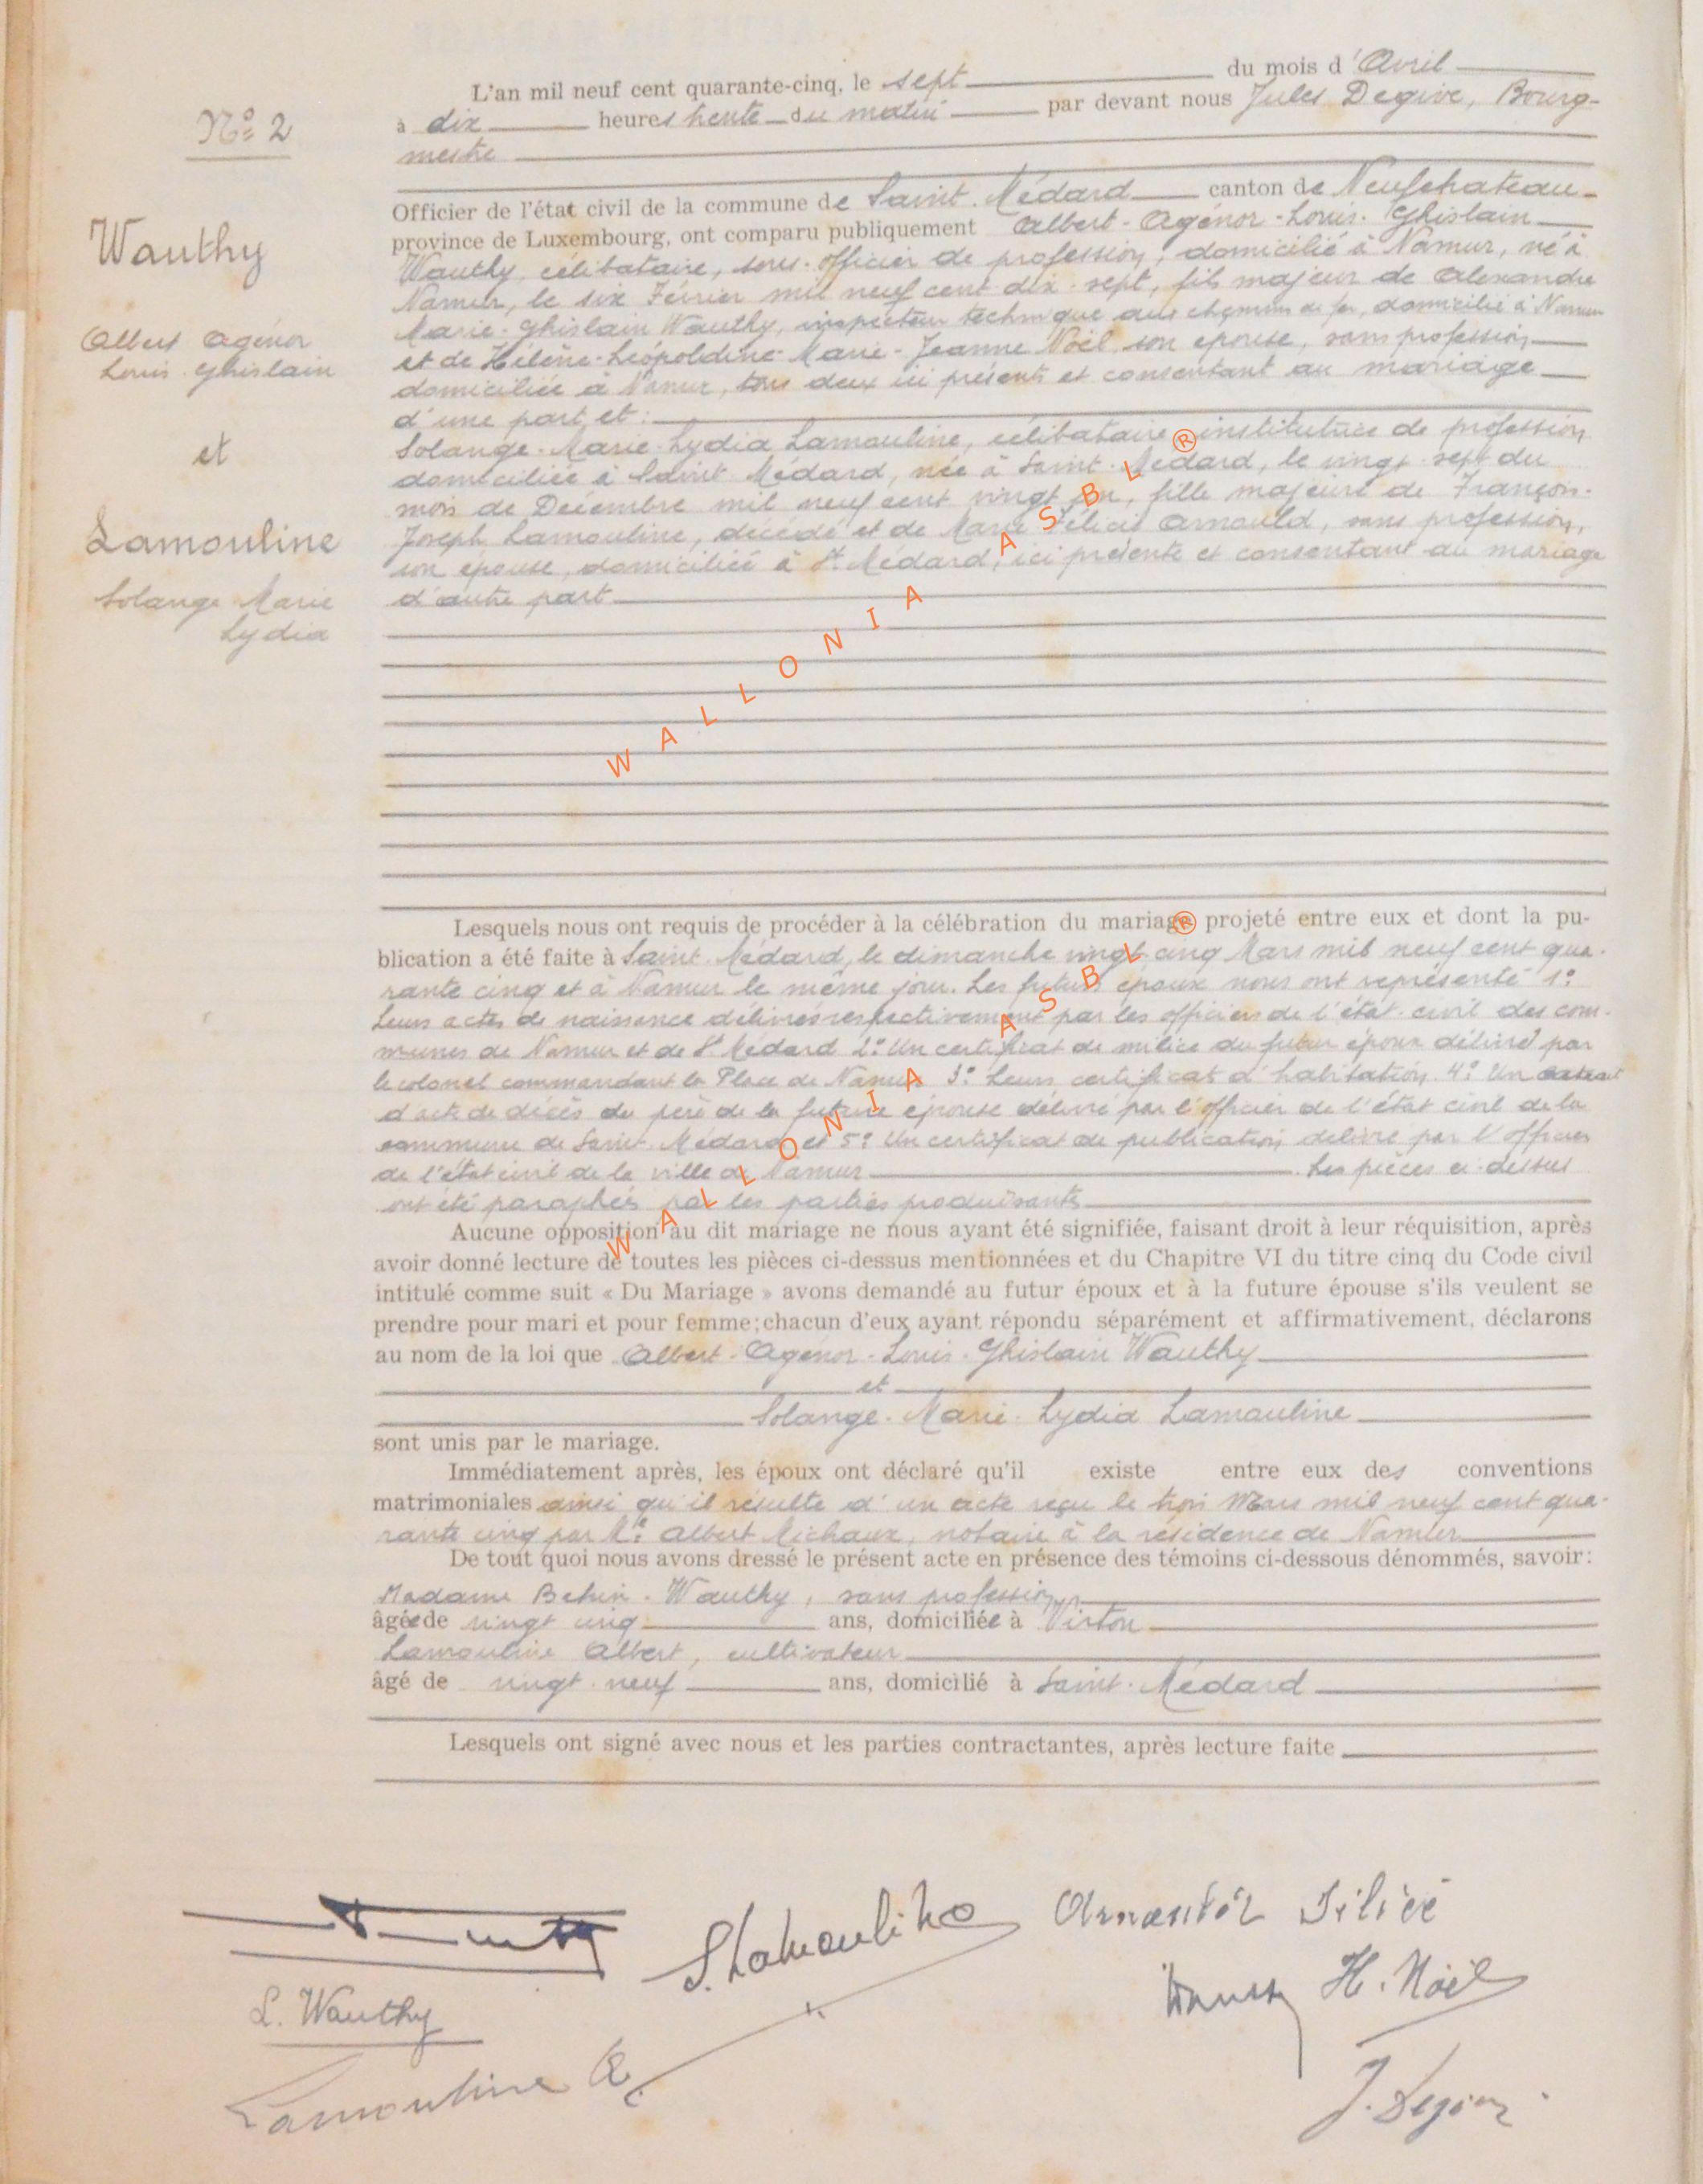 N° 2
Wauthy
Albert Agénor
Louis Ghislain
et
Lamouline
Solange Marie
Lydia
L'an mil neuf cent quarante-cinq, le sept du mois d'Avril
à dix heures trente du matin par devant nous Jules Degive, Bourg-
mestre
Officier de l'état civil de la commune de Saint-Médard canton de Neufchateau
province de Luxembourg, ont comparu publiquement Albert-Agénor-Louis-Ghislain
Wauthy, célibataire, sous-officier de profession, domicilié à Namur, né à
Namur, le six Février mil neuf cent dix-sept, fils majeur de Alexandre
Marie-Ghislain Wauthy, inspecteur technique aux chemins de fer, domicilié à Namur
et de Hélène-Léopoldine-Marie-Jeanne Noël, son épouse, sans profession
domiciliée à Namur, tous deux ici présents et consentant au mariage
d'une part, et :
Solange-Marie-Lydia Lamouline, célibataire, institutrice de profession
domiciliée à Saint-Médard, née à Saint-Médard, le vingt-sept du
mois de Décembre mil neuf cent vingt un, fille majeure de François-
Joseph Lamouline, décédé et de Marie Félicie Arnould, sans profession,
son épouse, domiciliée à St Médard, ici présente et consentant au mariage
d'autre part
Lesquels nous ont requis de procéder à la célébration du mariage projeté entre eux et dont la pu-
blication a été faite à Saint-Médard, le dimanche vingt-cinq Mars mil neuf cent qua-
rante cinq et à Namur le même jour. Les futurs époux nous ont représenté 1°
Leurs actes de naissance délivrés respectivement par les officiers de l'état civil des com-
munes de Namur et de St Médard 2° Un certificat de milice du futur époux délivré par
le colonel commandant la Place de Namur 3° Leurs certificat d'habitation 4° Un extrait
d'acte de décès du père de la future épouse délivré par l'officier de l'état civil de la
commune de Saint-Médard et 5° Un certificat de publication délivré par l'officier
de l'état civil de la ville de Namur. Les pièces ci-dessus
ont été paraphés par les parties produisants
Aucune opposition au dit mariage ne nous ayant été signifiée, faisant droit à leur réquisition, après
avoir donné lecture de toutes les pièces ci-dessus mentionnées et du Chapitre VI du titre cinq du Code civil
intitulé comme suit « Du Mariage » avons demandé au futur époux et à la future épouse s'ils veulent se
prendre pour mari et pour femme; chacun d'eux ayant répondu séparément et affirmativement, déclarons
au nom de la loi que Albert-Agénor-Louis-Ghislain Wauthy
et
Solange-Marie-Lydia Lamouline
sont unis par le mariage.
Immédiatement après, les époux ont déclaré qu'il existe entre eux des conventions
matrimoniales ainsi qu'il résulte d'un acte reçu le trois Mars mil neuf cent qua-
rante cinq par Me Albert Michaux, notaire à la résidence de Namur
De tout quoi nous avons dressé le présent acte en présence des témoins ci-dessous dénommés, savoir:
Madame -Wauthy, sans profession
âgée de vingt cinq ans, domiciliée à Virton
Lamouline Albert, cultivateur
âgé de vingt-neuf ans, domicilié à Saint-Médard
Lesquels ont signé avec nous et les parties contractantes, après lecture faite
S. Lamouline
L. Wauthy
H. Noël
Lamouline A.
WALLONIA ASBL ®
WALLONIA ASBL ®